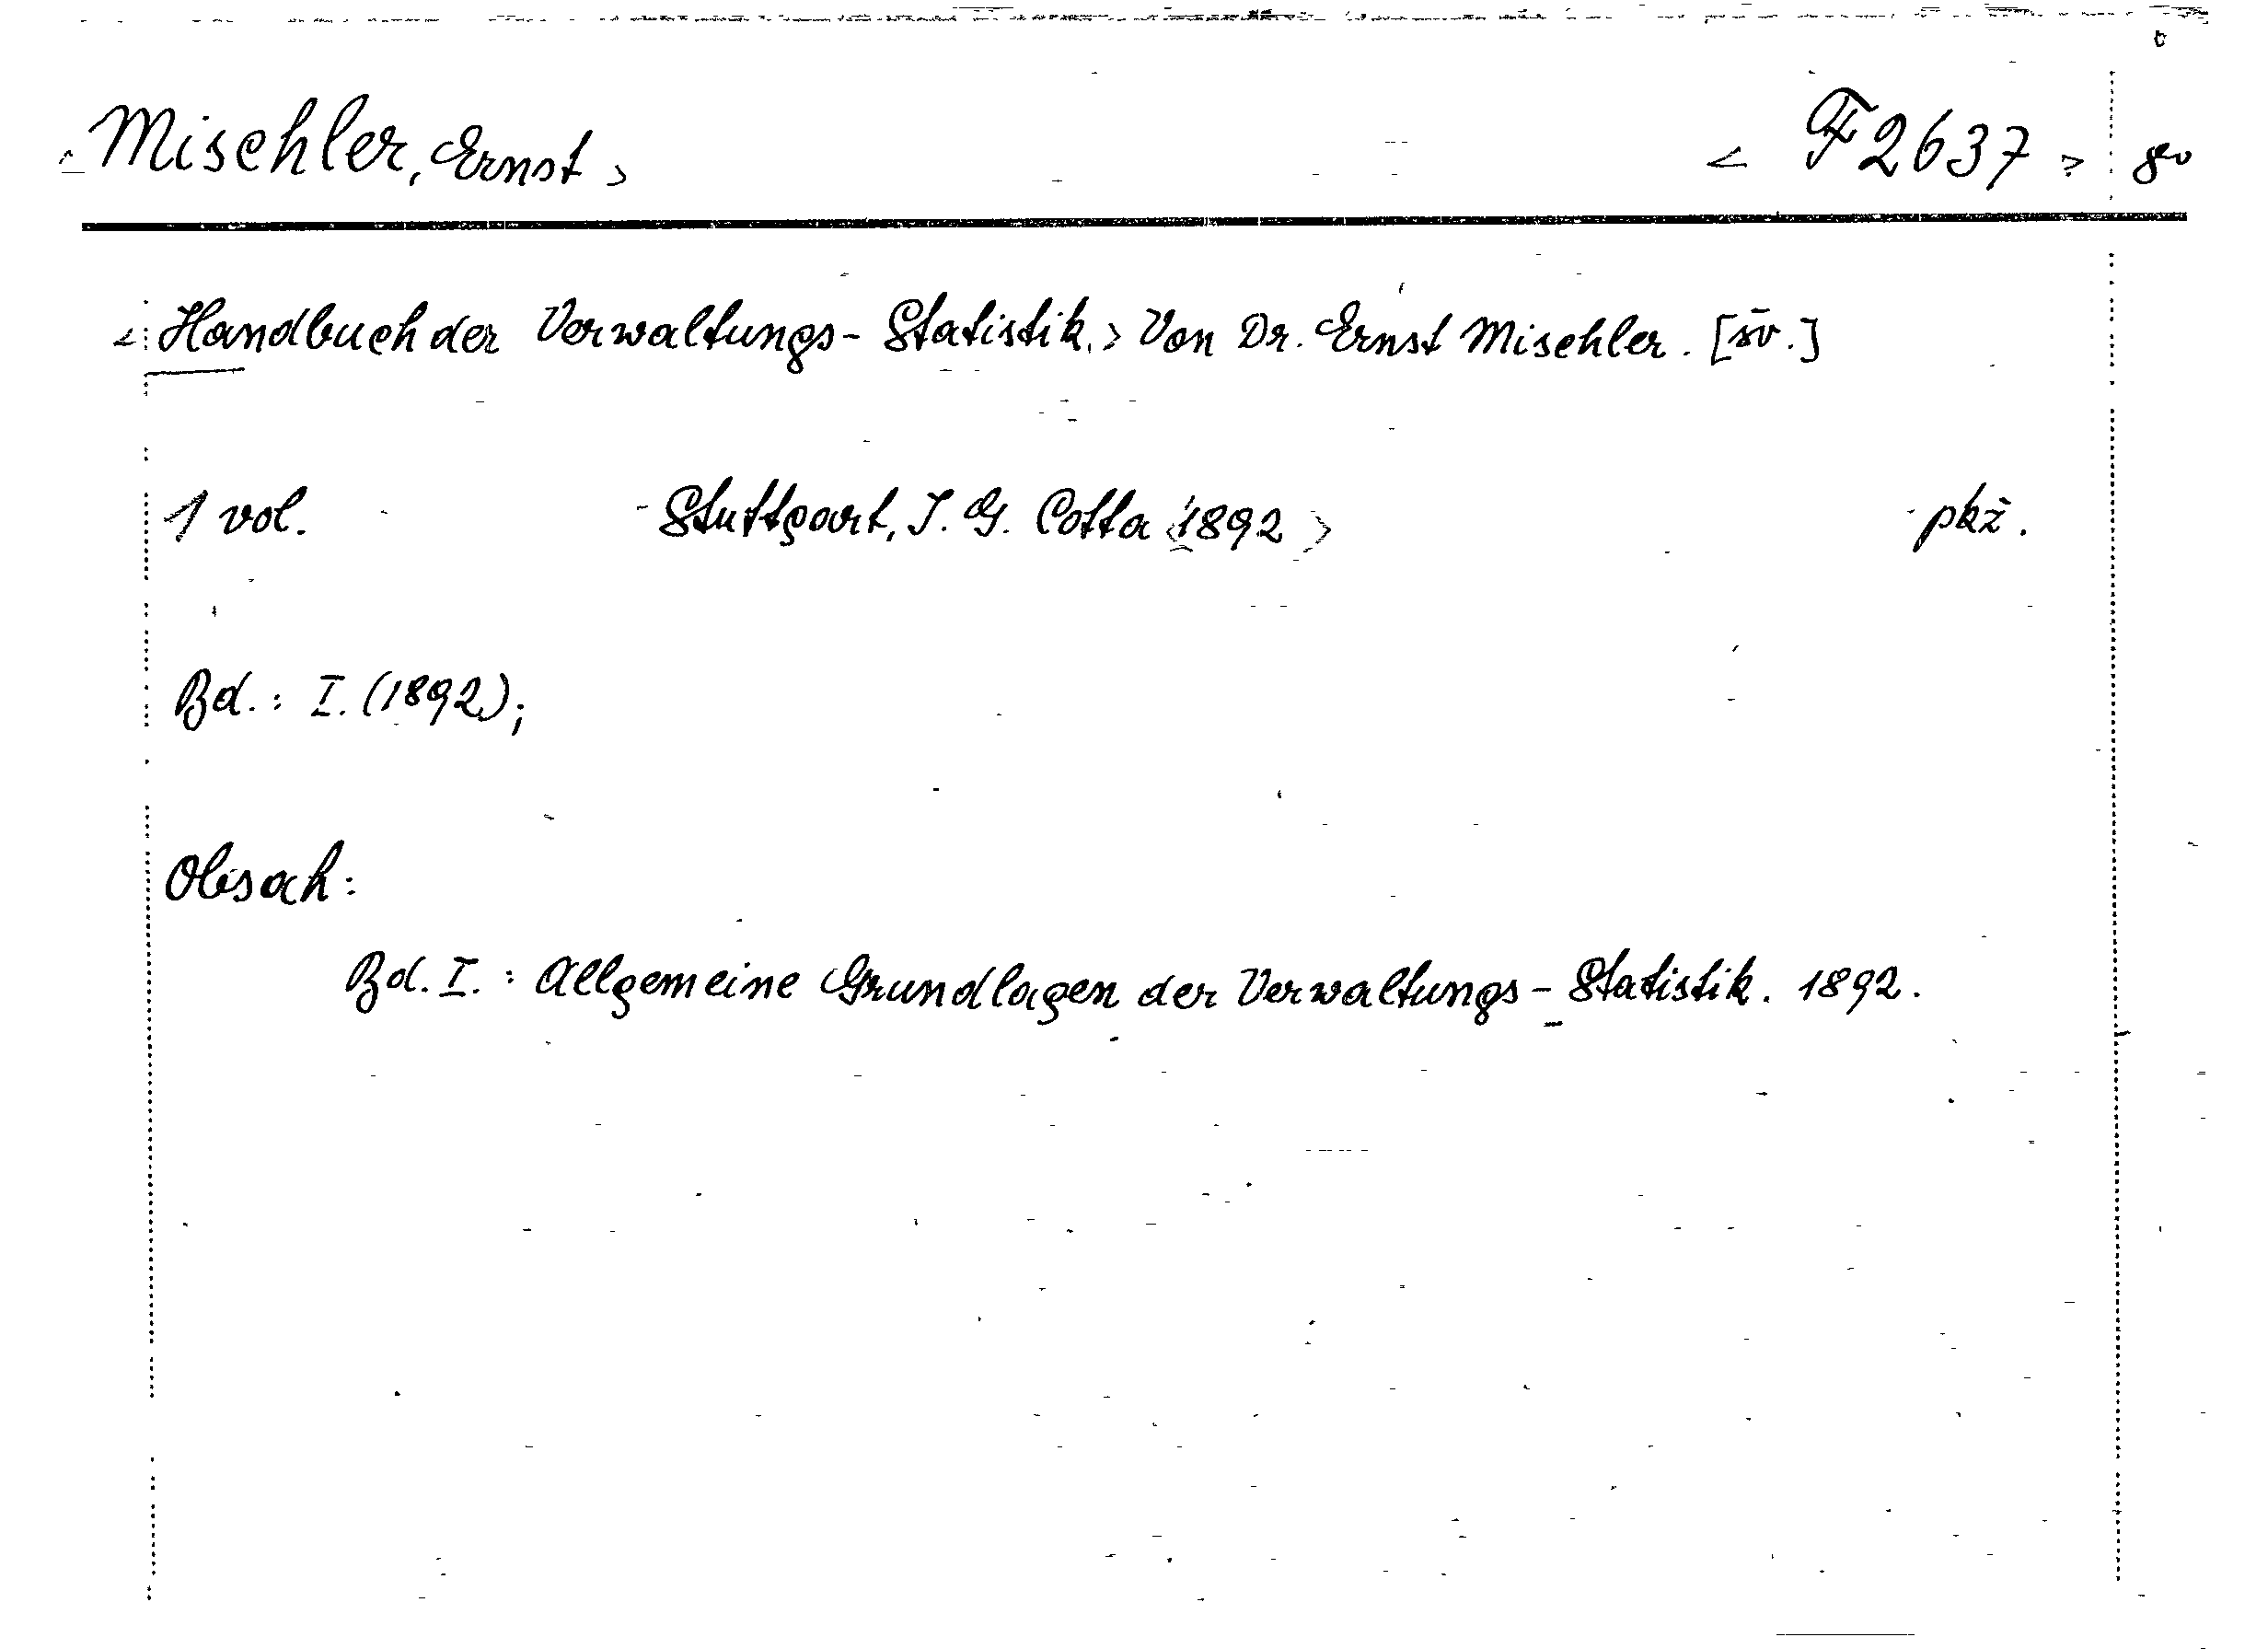 <Mischler, Ernst> < F 2637 > 8°
<Handbuch der Verwaltungs-Statistik.> Von Dr. Ernst Mischler. [sv.]
1 vol. Stuttgart, J. G. Cotta <1892> pkž.
Bd.: I. (1892);
Obsah:
Bd. I.: Allgemeine Grundlagen der Verwaltungs-Statistik. 1892.